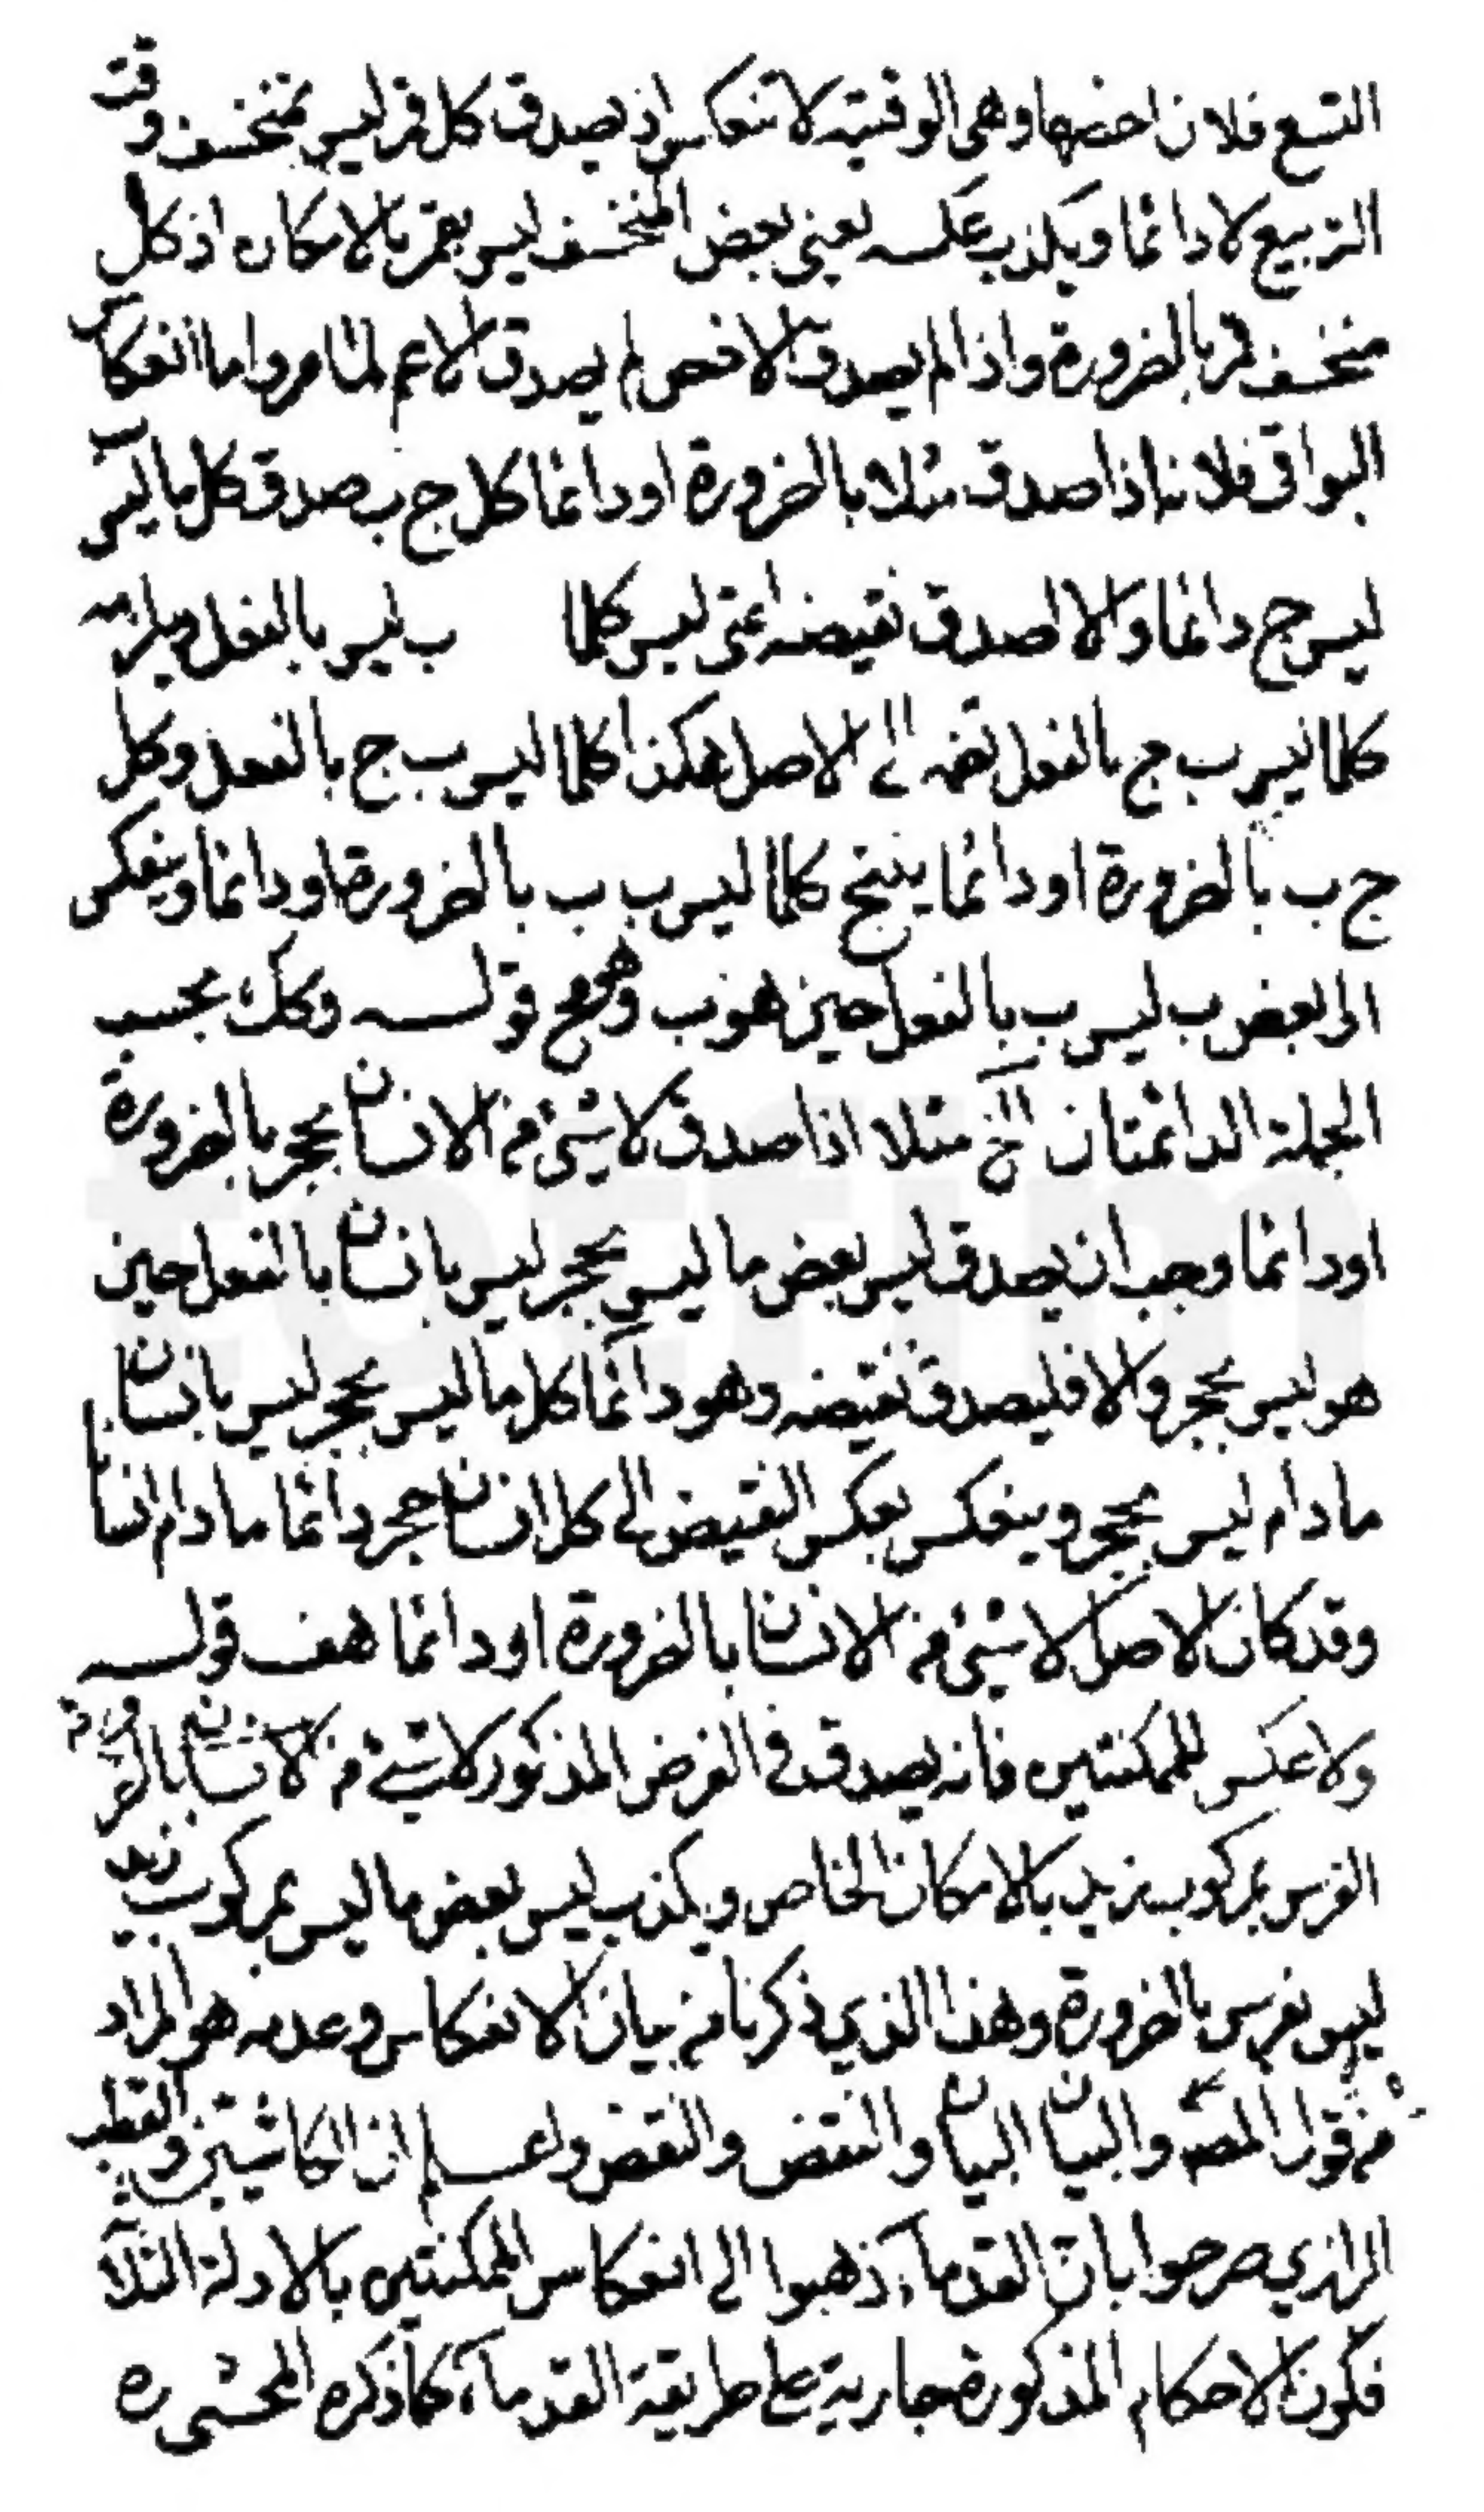 التسع فلان اخصها وهى الوقتيه لا تنعكس اذ يصدق كل قمر ليس بمنخسف وقت
التربيع لا دائما ويكذب عكسه يعنى بعض المنخسف ليس بقمر بالامكان اذ كل
منخسف قمر بالضرورة واذا لم يصدق الاخص لم يصدق الاعم لما مر واما انعكاس
البواقى فلانه اذا صدق مثلا بالضرورة او دائما كل ج ب صدق كل ما ليس ب
ليس ج دائما والا لصدق نقيضه اعنى ليس كلما ب ليس بالفعل ويلزمه
كلما ليس ب ج بالفعل نضمه الى الاصل هكذا كلما ليس ب ج بالفعل وكل
ج ب بالضرورة او دائما ينتج كلما ليس ب ب بالضرورة او دائما وينعكس
الى بعض ب ليس ب بالفعل حين هو ب وهو مح قولـه وكك بحسب
الجملة الدائمتان الخ مثلا اذا صدق لا شئ من الانسان بحجر بالضرورة
او دائما وجب ان يصدق ليس بعض ما ليس بحجر ليس بانسان بالفعل حين
هو ليس بحجر والا فليصدق نقيضه وهو دائما كل ما ليس بحجر ليس بانسان
ما دام ليس بحجر وينعكس بعكس النقيض الى كل انسان حجر دائما ما دام انسانا
وقد كان الاصل لا شئ من الانسان بالضرورة او دائما هف قولـه
ولا عكس للممكنتين فانه يصدق فى الفرض المذكور لا شئ من الانسان بالضرورة
الفرس بمركوب زيد بالامكان الخاص ويكذب ليس بعض ما ليس بمركوب زيد
ليس بفرس بالضرورة وهذا الذي ذكرنا من بيان الانعكاس وعدمه هو المراد
من قول المصـ والبيان البيان والنقض والنقض واعـلم ان الكاشى والقطب
الرازي صرحوا بان القدماء ذهبوا الى انعكاس الممكنتين بالادلة الثلاثة
فكون الاحكام المذكورة جارية على طريقة القدماء كما ذكره المحشى ره